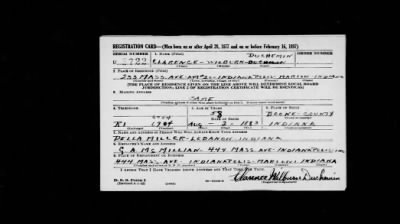 REGISTRATION CARD—(Men born on or after April 28, 1877 and on or before February 16, 1897)
SERIAL NUMBER 1. NAME (Print) DUCHEMIN ORDER NUMBER
U 2722 CLARENCE - WILBURN - DUCHEMIN
2. PLACE OF RESIDENCE (Print)
253 MASS. AVE INDIANAPOLIS MARION INDIANA
[THE PLACE OF RESIDENCE GIVEN ON THE LINE ABOVE WILL DETERMINE LOCAL BOARD
JURISDICTION; LINE 2 OF REGISTRATION CERTIFICATE WILL BE IDENTICAL]
3. MAILING ADDRESS
SAME
4. TELEPHONE 5. AGE IN YEARS 6. PLACE OF BIRTH
58 BOONE - COUNTY
DATE OF BIRTH
AUG - 2 - 1883 INDIANA
7. NAME AND ADDRESS OF PERSON WHO WILL ALWAYS KNOW YOUR ADDRESS
DELLA MILLER - LEBANON INDIANA
8. EMPLOYER'S NAME AND ADDRESS
MCMILLIAN - 444 MASS AVE - INDIANAPOLIS
9. PLACE OF EMPLOYMENT OR BUSINESS
444 MASS AVE INDIANAPOLIS - MARION INDIANA
I AFFIRM THAT I HAVE VERIFIED ABOVE ANSWERS AND THAT THEY ARE TRUE.
Clarence Wilburn Duchemin